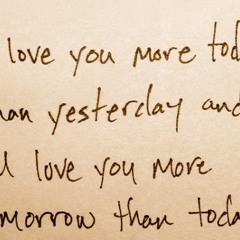 love you more tod
an yesterday and
ll love you more
morrow than toda